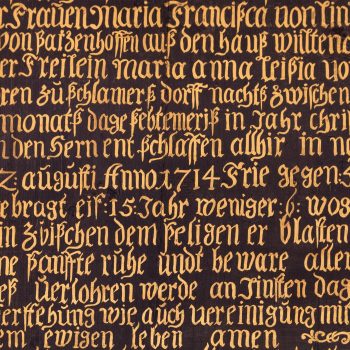 n Frauen Maria Francisca von lin
von Katzenhoffen auß den hauß willtene
er Freilein maria anna leisia vo
ren zü schlamerß dorff nachtß zwischen
monatß dage sebtemeriß in Jahr chri
n den Hern ent schlaffen allhir in no
2. augusti Anno 1714 Frie gegen: 5
gebragt eiß: 15: Jahr weniger: 6: wog
in zwischen dem seligen er blasten
ne sanffte ruhe undt beware allen
eß verlohren werde an Jinsten dag
ferstehung wie auch vereinigung mit
em ewigen leben amen